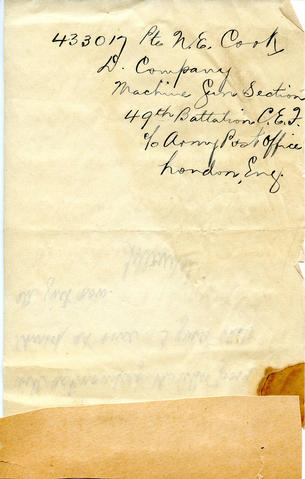 433017 Pte N. E. Cook
D. Company
Machine Gun Section
49th Battalion C.E.F.
c/o Army Post Office
London, Eng.